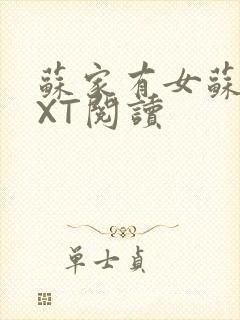 蘇家有女蘇
XT閱讀
單士貞